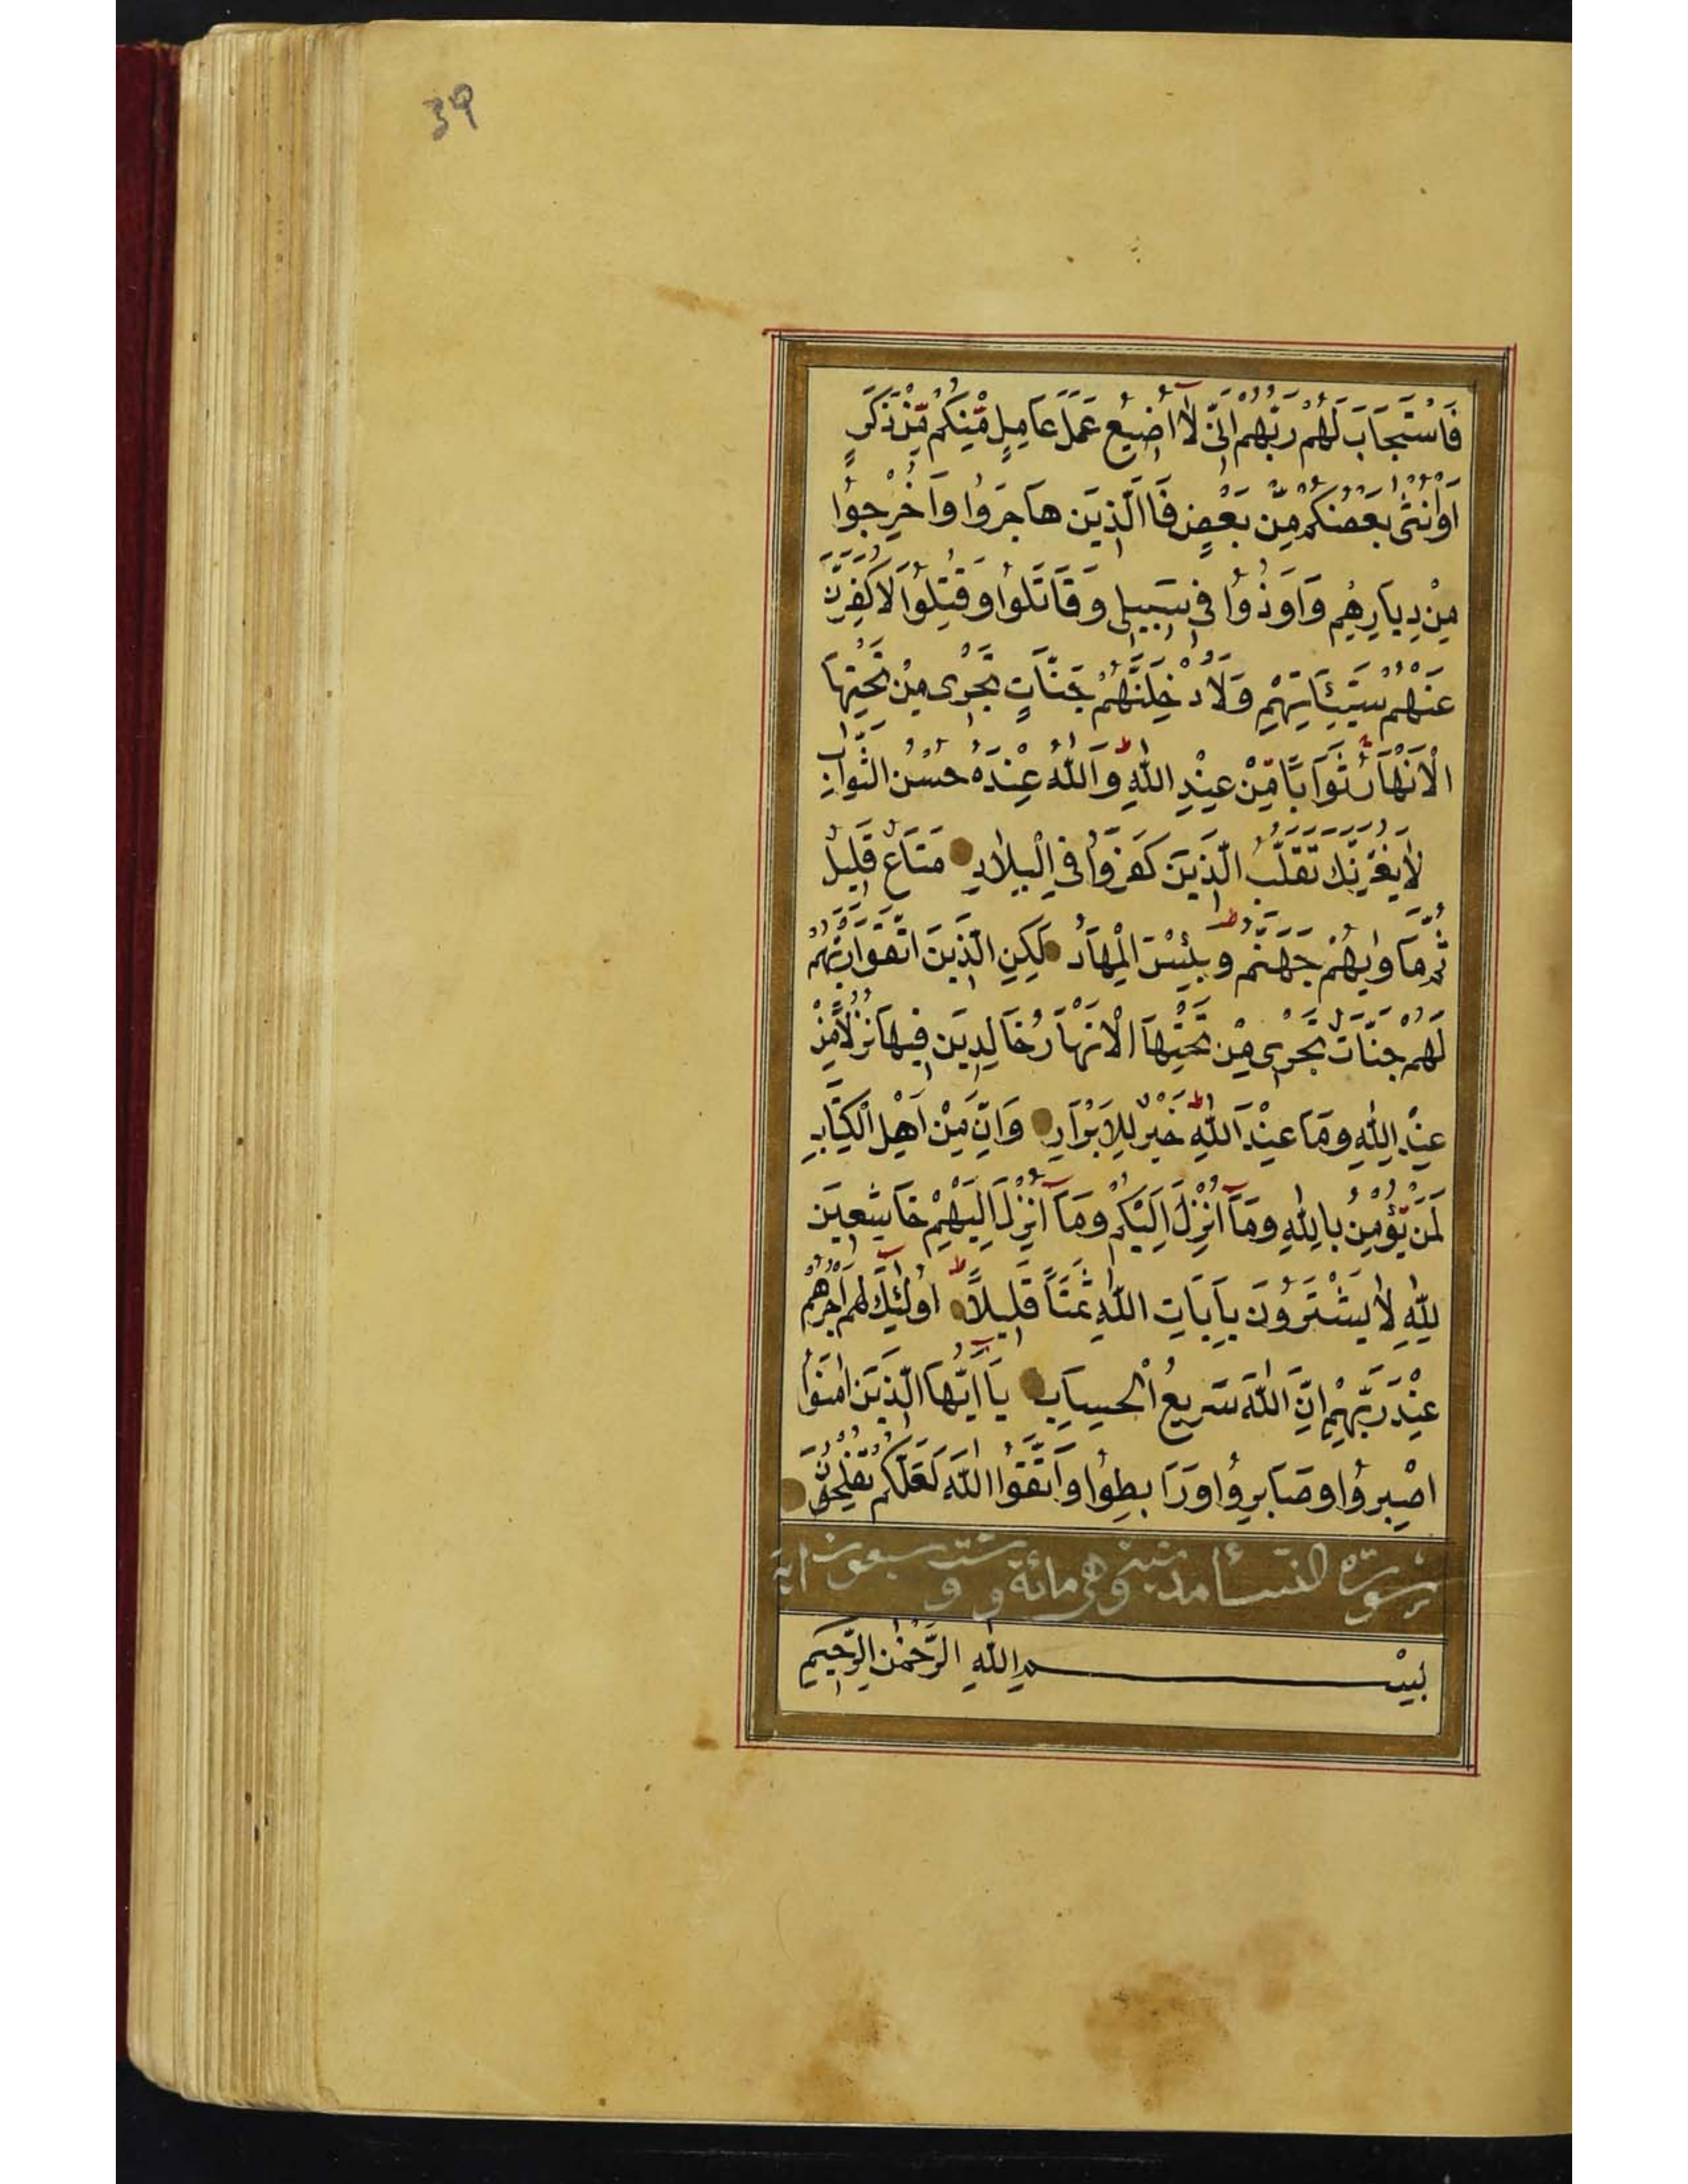 39
فَاسْتَجَابَ لَهُمْ رَبُّهُمْ اَنّٖى لَا اُضٖيعُ عَمَلَ عَامِلٍ مِّنْكُمْ مِّنْ ذَكَرٍ
اَوْ اُنْثٰى بَعْضُكُمْ مِّنْ بَعْضٍ فَالَّذٖينَ هَاجَرُوا وَاُخْرِجُوا
مِنْ دِيَارِهِمْ وَاُوذُوا فٖى سَبٖيلٖى وَقَاتَلُوا وَقُتِلُوا لَاُكَفِّرَنَّ
عَنْهُمْ سَيِّئَاتِهِمْ وَلَاُدْخِلَنَّهُمْ جَنَّاتٍ تَجْرٖى مِنْ تَحْتِهَا
الْاَنْهَارُ ثَوَابًا مِّنْ عِنْدِ اللّٰهِ ط وَاللّٰهُ عِنْدَهُ حُسْنُ الثَّوَابِ
لَا يَغُرَّنَّكَ تَقَلُّبُ الَّذٖينَ كَفَرُوا فِي الْبِلَادِ مَتَاعٌ قَلٖيلٌ
ثُمَّ مَاْوٰيهُمْ جَهَنَّمُ ط وَبِئْسَ الْمِهَادُ لٰكِنِ الَّذٖينَ اتَّقَوْا رَبَّهُمْ
لَهُمْ جَنَّاتٌ تَجْرٖى مِنْ تَحْتِهَا الْاَنْهَارُ خَالِدٖينَ فٖيهَا نُزُلًا مِّنْ
عِنْدِ اللّٰهِ وَمَا عِنْدَ اللّٰهِ ط خَيْرٌ لِّلْاَبْرَارِ وَاِنَّ مِنْ اَهْلِ الْكِتَابِ
لَمَنْ يُّؤْمِنُ بِاللّٰهِ وَمَآ اُنْزِلَ اِلَيْكُمْ وَمَآ اُنْزِلَ اِلَيْهِمْ خَاشِعٖينَ
لِلّٰهِ لَا يَشْتَرُونَ بِاٰيَاتِ اللّٰهِ ثَمَنًا قَلٖيلًا ط اُولٰٓئِكَ لَهُمْ اَجْرُهُمْ
عِنْدَ رَبِّهِمْ اِنَّ اللّٰهَ سَرٖيعُ الْحِسَابِ يَآ اَيُّهَا الَّذٖينَ اٰمَنُوا
اصْبِرُوا وَصَابِرُوا وَرَابِطُوا وَاتَّقُوا اللّٰهَ لَعَلَّكُمْ تُفْلِحُونَ
سورة النسأ مدنية وهى مائة و ست و سبعون اية
بِسْمِ اللّٰهِ الرَّحْمٰنِ الرَّحٖيمِ